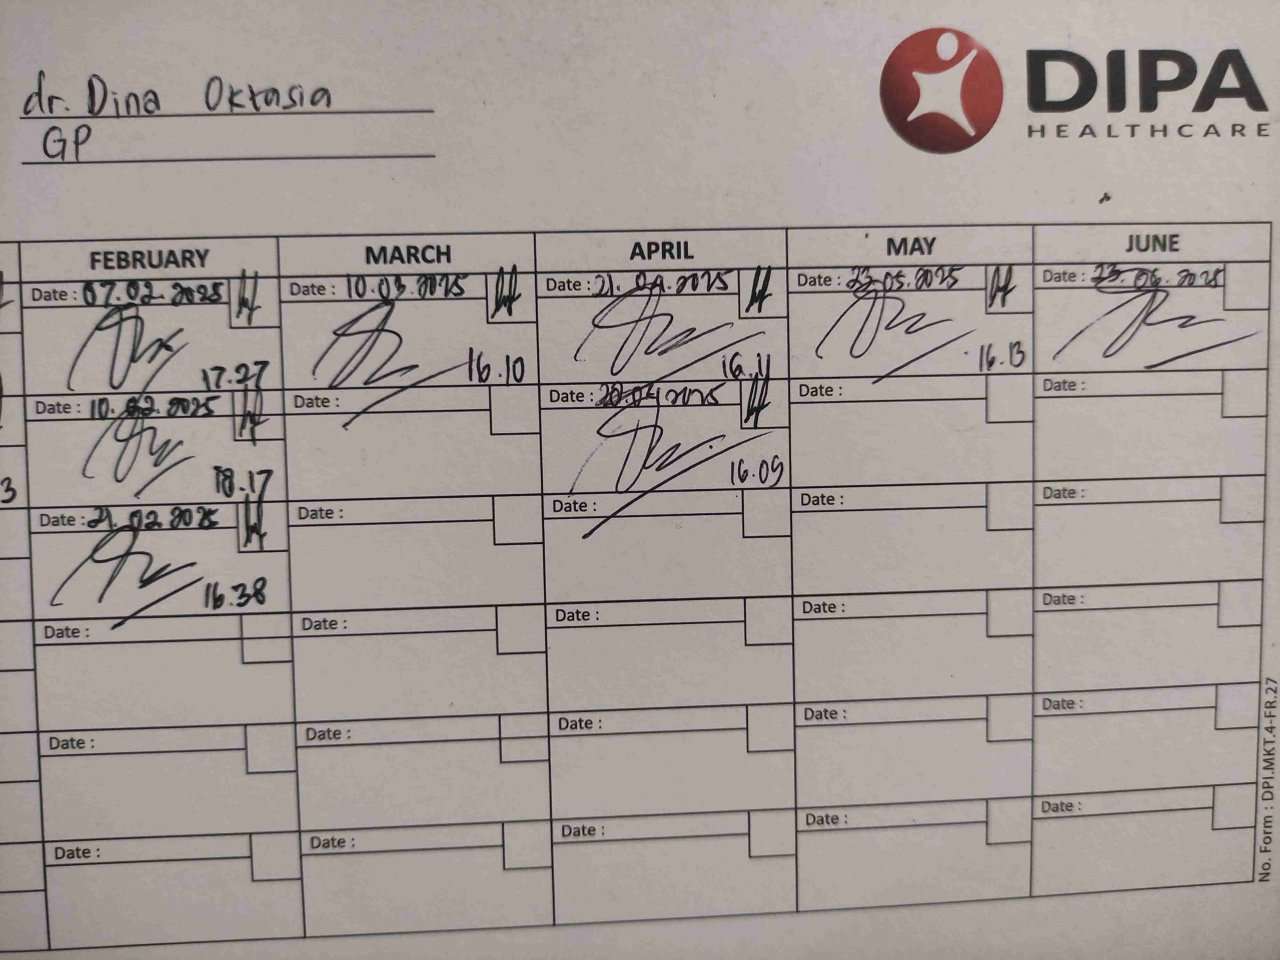 dr. Dina Oktasia
GP
DIPA
HEALTHCARE
FEBRUARY MARCH APRIL MAY JUNE
Date : 07.02.2025 Date : 10.03.2025 Date : 21.04.2025 Date : 23.05.2025 Date : 23.06.2025
17.27 16.10 16.11 16.13
Date : 10.02.2025 Date : Date : 28.04.2025 Date : Date :
18.17 16.09
3
Date : 21.02.2025 Date : Date : Date : Date :
16.38
Date : Date : Date : Date : Date :
Date : Date : Date : Date : Date :
Date : Date : Date : Date : Date :
No. Form : DPI.MKT.4-FR.27